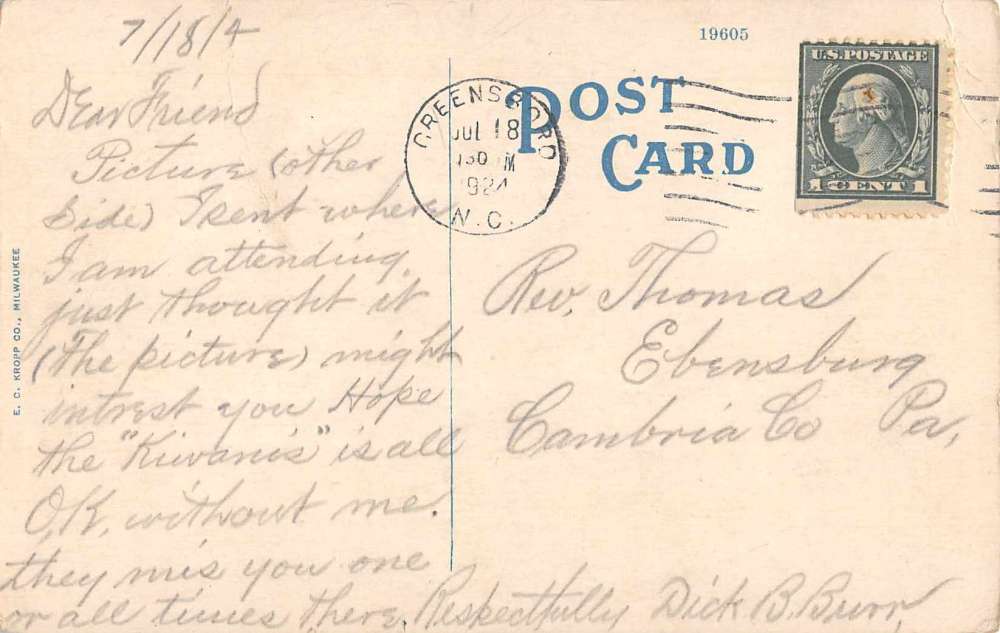 7/18/4
Dear Friend
Picture (other
side) I sent where
I am attending,
just thought it
(the picture) might
intrest you Hope
the "Kiwanis" is all
O.K. without me.
they mis you one
or all times there, Respectfully Dick B. Burr,
19605
POST
CARD
GREENSBORO
JUL 18
1924
N.C.
U.S. POSTAGE
1 CENT 1
Rev, Thomas
Ebensburg
Cambria Co Pa,
E. C. KROPP CO., MILWAUKEE